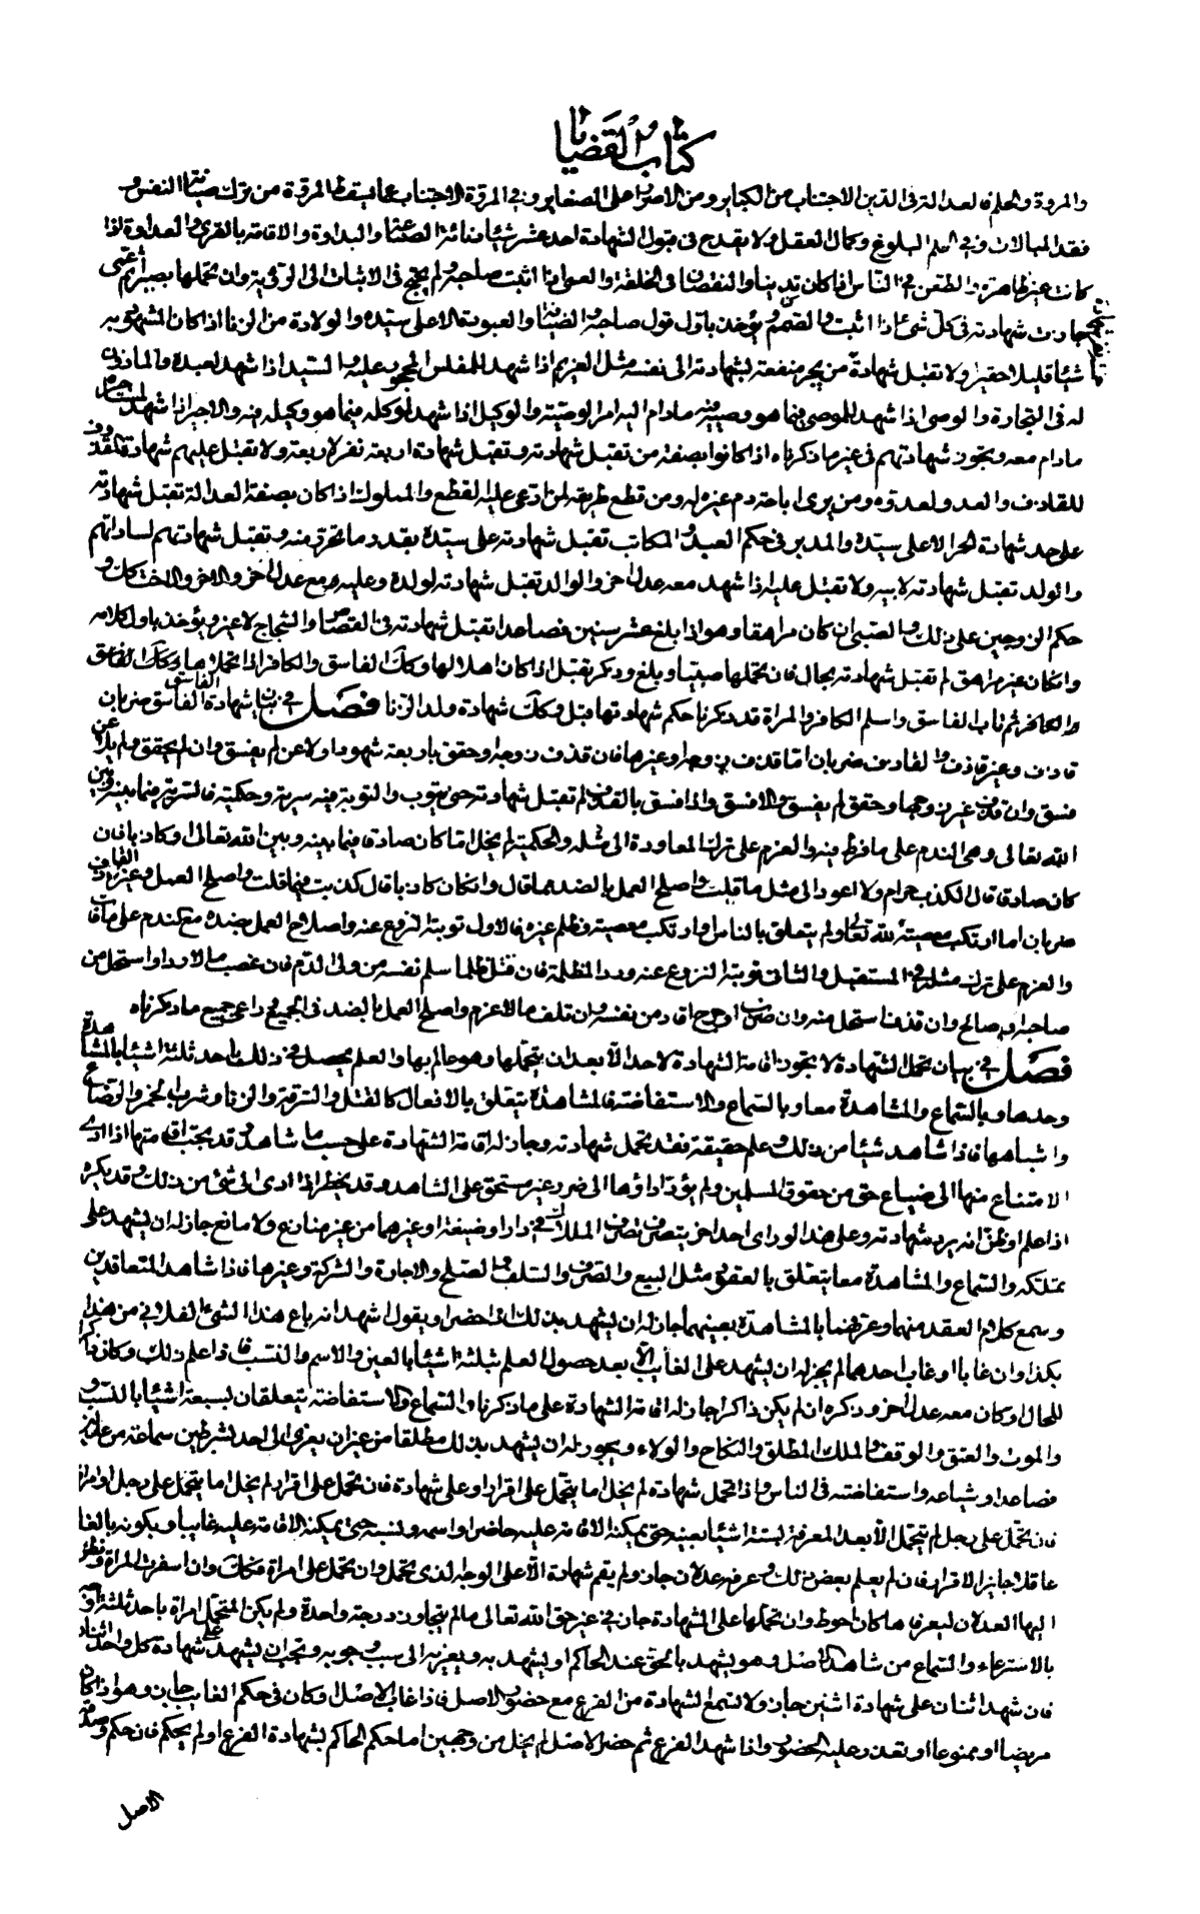 كتاب القضايا
والمروة والحلم فالعدالة في الدين الاجتناب من الكباير ومن الاصرار على الصغاير وفي المروة الاجتناب عما يسقط المروة من ترك صيانة النفس و
فقد المبالات وفي الحلم البلوغ وكمال العقل ولا يقدح في قبول الشهادة احد عشر شيئا دنائة الصناعة والبداوة والاقامة بالقرى والعداوة اذا
كانت غير ظاهرة والطعن في الناس اذا كان تدينا والنقصان في الخلقة والعمى اذا اثبت صاحبه ولم يحتج في الاثبات الى الروية وان تحملها بصير ثم عمى
جازت شهادته في كل شئ اذا اثبت والصمم ويؤخذ باول قول صاحبه والضيافة والعبودة الا على سيده والولادة من الزنا اذا كان المشهود به
شيئا قليلا حقيرا ولا تقبل شهادة من يجر منفعة بشهادته الى نفسه مثل الغريم اذا شهد للمفلس المحجور عليه والسيد اذا شهد لعبده والماذون
له في التجارة والوصى اذا شهد للموصى فيما هو وصيه فيه مادام اليه امر الوصية والوكيل اذا شهد لموكله فيما هو وكيله فيه والاجير اذا شهد لمستاجره
مادام معه ويجوز شهادتهم في غير ما ذكرناه اذا كانوا بصفة من تقبل شهادته وتقبل شهادة اربعة نفر لاربعة ولا تقبل عليهم شهادة المقذوف
للقاذف والعدو لعدوه ومن يرى اباحة دم غيره له ومن قطع طريقه لمن ادعى عليه القطع والمملوك اذا كان بصفة العدالة تقبل شهادته
على حد شهادة الحر الا على سيده والمدبر في حكم العبد والمكاتب تقبل شهادته على سيده بقدر ما تحرر منه وتقبل شهادتهم لساداتهم
والولد تقبل شهادته لابيه ولا تقبل عليه اذا شهد معه عدل اخر والوالد تقبل شهادته لولده وعليه مع عدل اخر والاخ والاخت كذلك و
حكم الزوجين على ذلك والصبى ان كان مراهقا وهو اذا بلغ عشر سنين فصاعدا تقبل شهادته في القصاص والشجاج لا غير ويؤخذ باول كلامه
وان كان غير مراهق لم تقبل شهادته بحال فان تحملها صبيا وبلغ وذكر تقبل اذا كان اهلا لها وكذلك الفاسق والكافر اذا تحملاها وكذلك الفاسق
والكافر ثم تاب الفاسق واسلم الكافر والمراة قد ذكرنا حكم شهادتها قبل وكذلك شهادة ولد الزنا فصل في بيان شهادة الفاسق الفاسق ضربان
قاذف وغير قاذف والقاذف ضربان اما قذف زوجه او غيرها فان قذف زوجه وحقق باربعة شهود او لاعن لم يفسق وان لم يحقق ولم يلاعن
فسق وان قذف غير زوجها وحقق لم يفسق والا فسق واذا فسق بالقذف لم تقبل شهادته حتى يتوب والتوبة فيه سرية وحكمية فالسرية فيما بينه وبين
الله تعالى وهى الندم على ما فرط منه والعزم على ترك المعاودة الى مثله والحكمية لم يخل اما كان صادقا فيما بينه وبين الله تعالى او كاذبا فان
كان صادقا قال الكذب حرام ولا اعود الى مثل ما قلت واصلح العمل بالضد مما قال وان كان كاذبا قال كذبت فيما قلت واصلح العمل وغير القاذف
ضربان اما ارتكب معصية لله تعالى ولم يتعلق بالناس او ارتكب معصية وظلم غيره فالاول توبته النزوع عنه واصلاح العمل بضده مع الندم على ما فات
والعزم على ترك مثله في المستقبل والثاني توبته النزوع عنه ورد المظلمة فان قتل ظلما سلم نفسه من ولى الدم فان غصب مالا رد او استحل من
صاحبه او صالح وان قذف استحل منه وان ضرب او جرح اقاد من نفسه وان تلف مالا غرم واصلح العمل بالضد في الجميع وراعى جميع ما ذكرناه
فصل في بيان تحمل الشهادة لا يجوز اقامة الشهادة لاحد الا بعد ان يتحملها وهو عالم بها والعلم يحصل في ذلك باحد ثلثة اشيا بالمشاهدة
وحدها وبالسماع والمشاهدة معا وبالسماع والاستفاضة فالمشاهدة يتعلق بالافعال كالقتل والسرقة والزنا وشرب الخمر والرضاع
واشباهها فاذا شاهد شيئا من ذلك وعلم حقيقته فقد تحمل شهادته وجاز له اقامة الشهادة على حسب ما شاهد وقد يجب اقامتها اذا ادى
الامتناع منها الى ضياع حق من حقوق المسلمين ولم يؤد اداؤها الى ضرر غير مستحق على الشاهد وقد يحظر اذا ادى الى شئ من ذلك وقد يكره
اذا علم او ظن انه يرد شهادته وعلى هذا لو راى احدا خر يتصرف تصرف الملاك في دار او ضيعة او غيرهما من غير منازع ولا مانع جاز له ان يشهد على
تملكه والسماع والمشاهدة معا يتعلق بالعقود مثل البيع والصرف والسلف والصلح والاجارة والشركة وغيرها فاذا شاهد المتعاقدين
وسمع كلام العقد منهما وعرفهما بالمشاهدة بعينهما جاز له ان يشهد بذلك اذا حضرا ويقول اشهد انه باع هذا الشئ الفلاني من هذا
بكذا وان غابا او غاب احدهما لم يجز له ان يشهد على الغايب الا بعد حصول العلم بثلثة اشيا بالعين والاسم والنسب فاذا علم ذلك وكان ذاكرا
للحال او كان معه عدل اخر وذكره ان لم يكن ذاكرا جاز له اقامة الشهادة على ما ذكرنا والسماع والاستفاضة يتعلقان بسبعة اشيا بالنسب و
والموت والعتق والوقف والملك المطلق والنكاح والولاء ويجوز له ان يشهد بذلك مطلقا من غير ان يعزى الى احد بشرطين سماعه من عدلين
فصاعدا وشياعه واستفاضته في الناس واذا تحمل شهادة لم يخل اما يتحمل على اقرار او على شهادة فان تحمل على اقرار لم يخل اما يتحمل على رجل او امراة
فان تحمل على رجل لم يتحمل الا بعد المعرفة بستة اشيا بعينه حتى يمكنه الاقامة عليه حاضرا واسمه ونسبه حتى يمكنه الاقامة عليه غايبا وبكونه بالغا
عاقلا جايز الاقرار فان لم يعلم بعض ذلك وعرفه عدلان جاز ولم يقم شهادة الا على الوجه الذى تحمل وان تحمل على امراة فكذلك وان اسفرت المراة ونظر
اليها العدلان ليعرفاها كان احوط وان تحملها على الشهادة جاز في غير حق الله تعالى مالم يتجاوز درجة واحدة ولم يكن المتحمل امراة باحد ثلثة اشيا
بالاسترعاء والسماع من شاهد الاصل وهو يشهد بالحق عند الحاكم او يشهد به ويعزيه الى سبب وجوبه ويجب ان يشهد على شهادة كل واحد اثنان
فان شهد اثنان على شهادة اثنين جاز ولا تسمع الشهادة من الفرع مع حضور الاصل فاذا غاب الاصل او كان في حكم الغايب جاز وهو اذا كان
مريضا او ممنوعا او تعذر عليه الحضور واذا شهد الفرع ثم حضر الاصل لم يخل من وجهين اما حكم الحاكم بشهادة الفرع او لم يحكم فان حكم وصدقه
الاصل